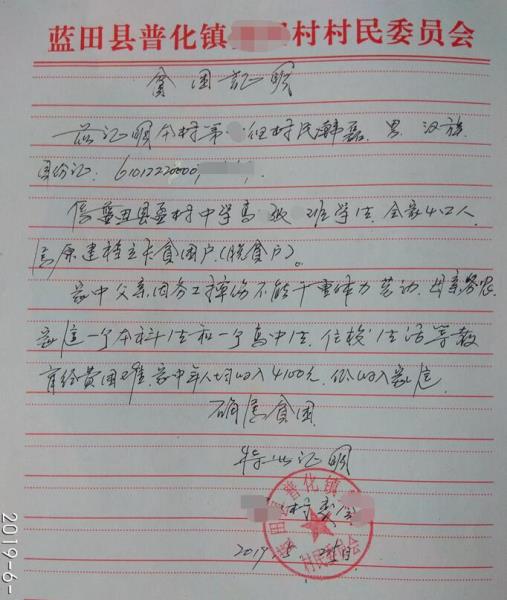 蓝田县普化镇 村村民委员会
贫困证明
兹证明本村第 组村民韩磊，男，汉族，
身份证：6101222000
系蓝田县 村中学高 班学生，全家4口人，
属原建档立卡贫困户（脱贫户）。
家中父亲因务工摔伤不能干重体力劳动，母亲务农，
家庭一个本科生和一个高中生，住校生活等教
育经费困难，家中年人均收入4100元，低收入家庭，
确属贫困
特此证明
村委会
2019
蓝田县普化镇 村民委员会
2019-6-